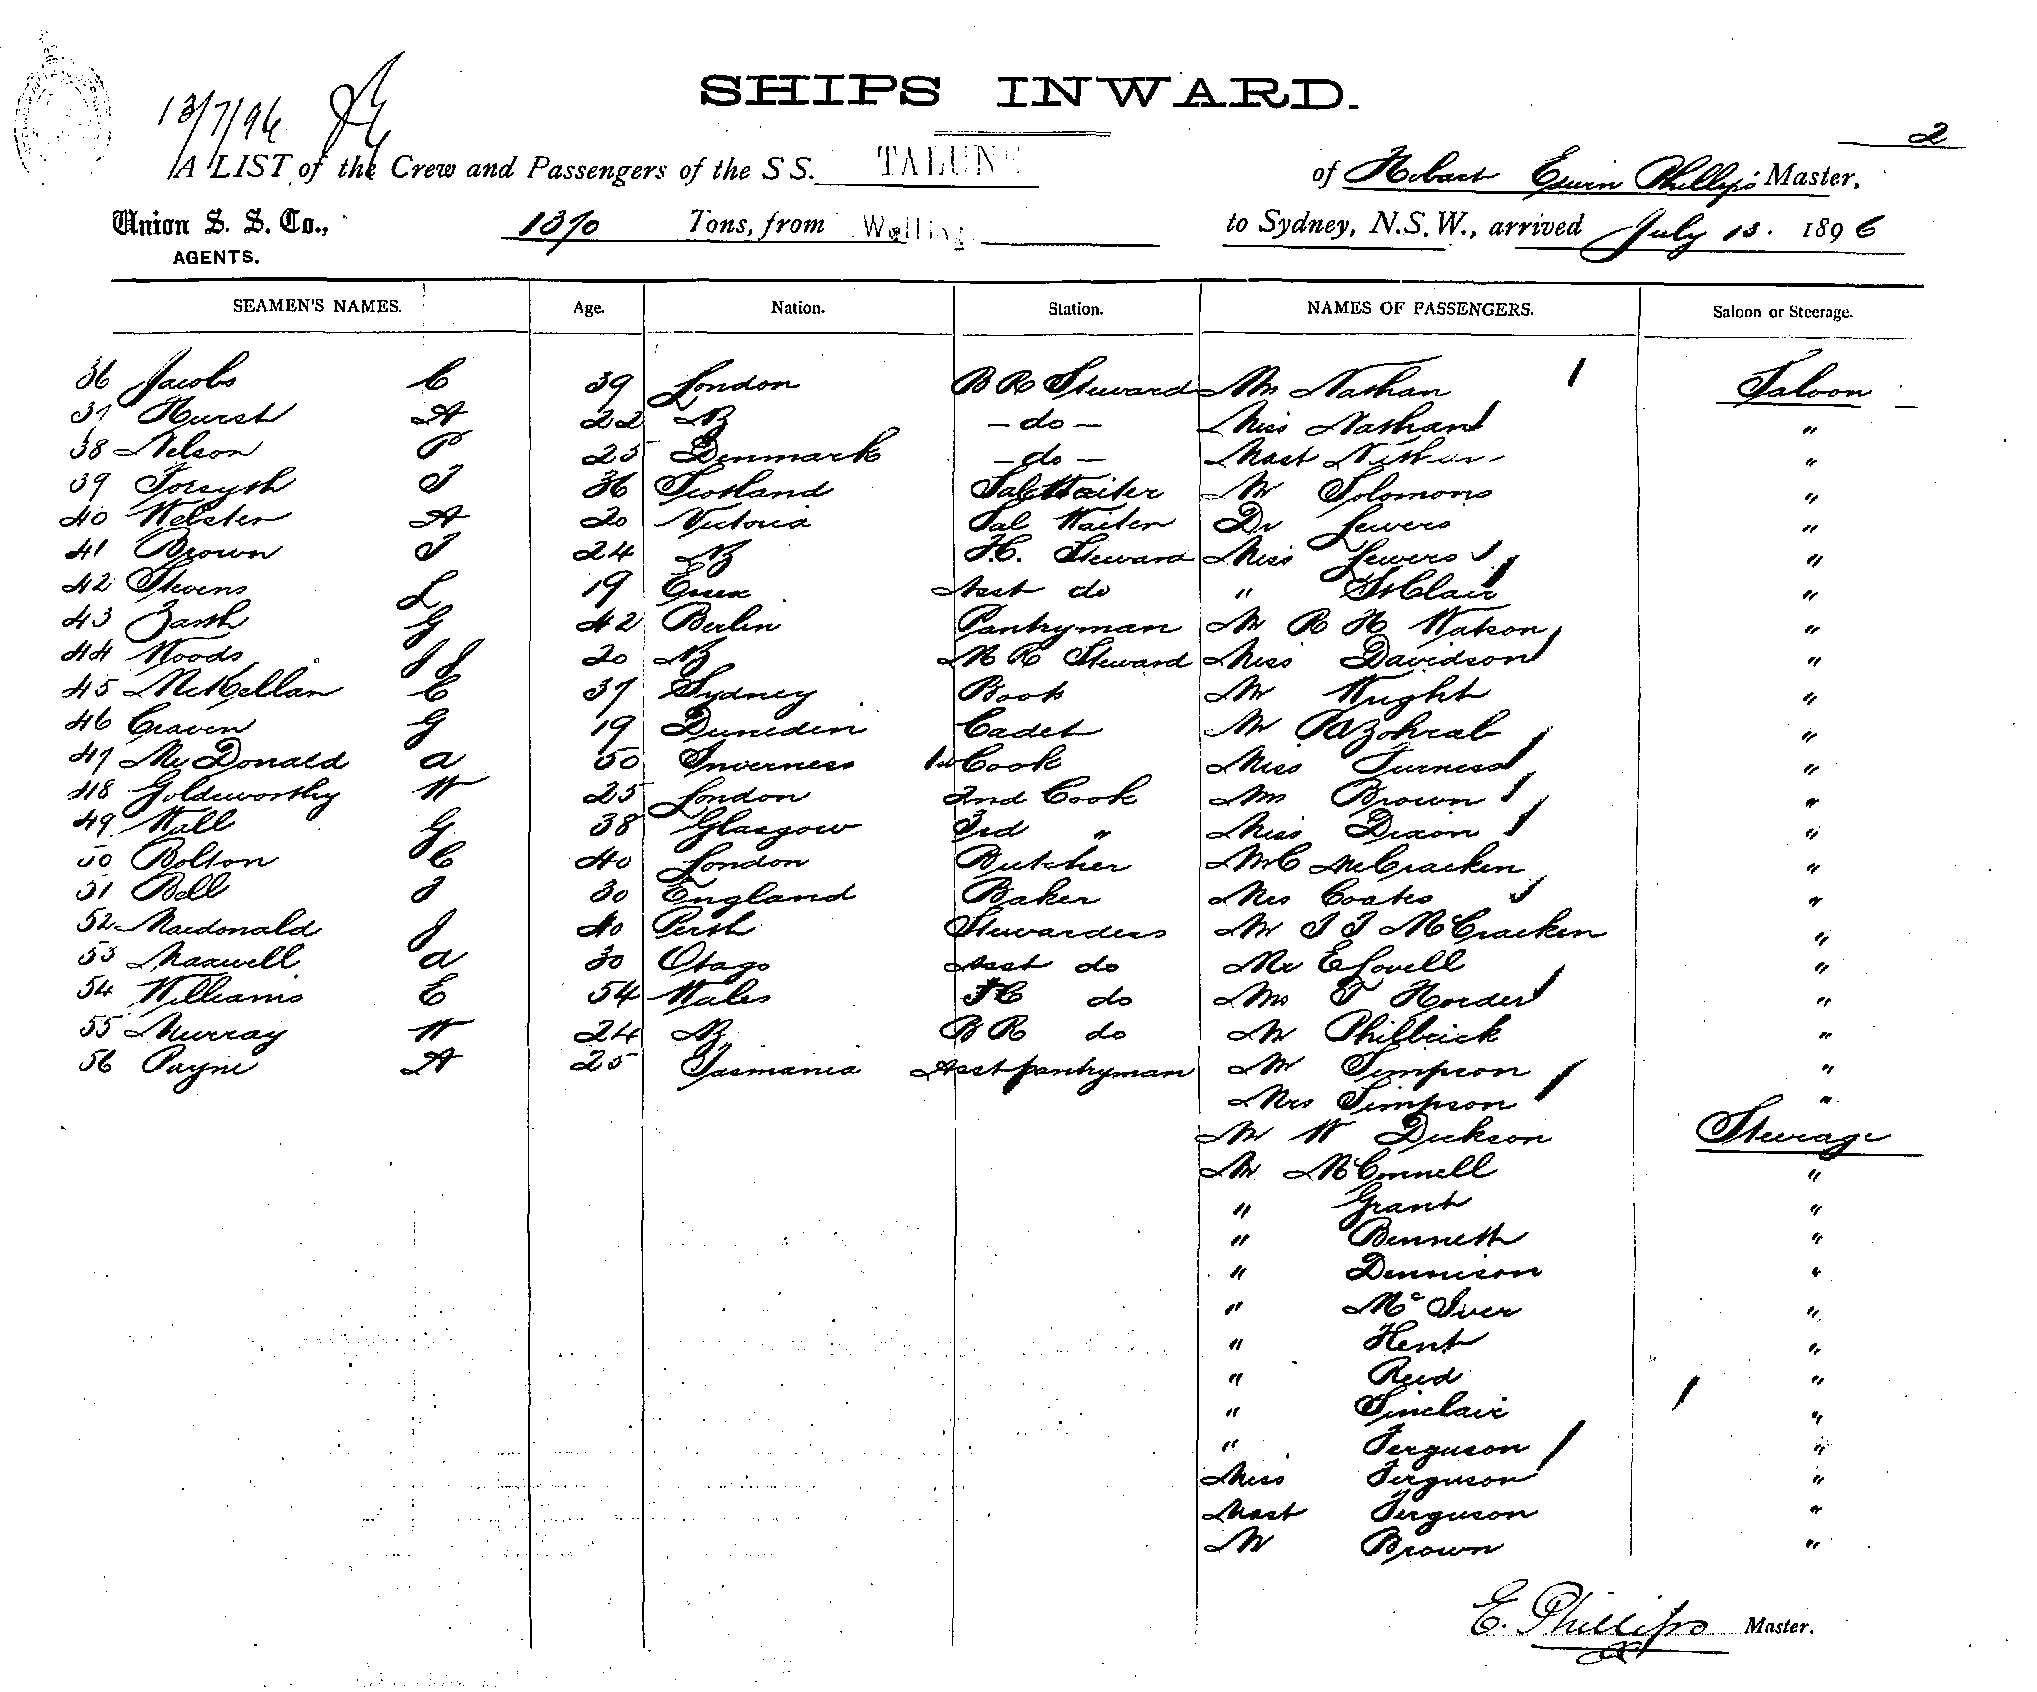 SHIPS INWARD.
13/7/96
2
A LIST of the Crew and Passengers of the S S. TALUNE of Hobart Edwin Phillips Master,
Union S. S. Co., 1370 Tons, from Welling to Sydney, N.S.W., arrived July 13. 1896
AGENTS.
SEAMEN'S NAMES. Age. Nation. Station. NAMES OF PASSENGERS. Saloon or Steerage.
36 Jacobs C 39 London B R Steward Mrs Nathan Saloon
37 Hurst A 22 NZ - do - Miss Nathan "
38 Nelson P 25 Denmark - do - Mast Nathan "
39 Forsyth J 36 Scotland Sal Waiter Mr Solomons "
40 Webster A 20 Victoria Sal Waiter Dr Sewers "
41 Brown J 24 NZ F.C. Steward Miss Sewers "
42 Stevens L 19 Essex Asst do " St Clair "
43 Zarth G 42 Berlin Pantryman Mr R H Watson "
44 Woods J J 20 NZ M R Steward Miss Davidson "
45 McKellan C 37 Sydney Book Mr Wright "
46 Craven G 19 Dunedin Cadet Mr Zohrab "
47 McDonald A 50 Inverness 1st Cook Miss Furness "
48 Goldsworthy W 25 London 2nd Cook Mrs Brown "
49 Wall G 38 Glasgow 3rd " Miss Dixon "
50 Bolton C 40 London Butcher Mr C McCracken "
51 Bell J 30 England Baker Mrs Coates "
52 Macdonald J 40 Perth Stewardess Mr J J McCracken "
53 Maxwell A 30 Otago Asst do Mr E Lovell "
54 Williams E 54 Wales F C do Mrs T Horder "
55 Murray W 24 NZ B R do Mr Philbrick "
56 Payne A 25 Tasmania Asst pantryman Mr Simpson "
Mrs Simpson "
Mr W Dickson Steerage
Mr McConnell "
" Grant "
" Bennett "
" Dennison "
" McIver "
" Hent "
" Reid "
" Sinclair "
" Ferguson "
Miss Ferguson "
Mast Ferguson "
Mr Brown "
E. Phillips Master.